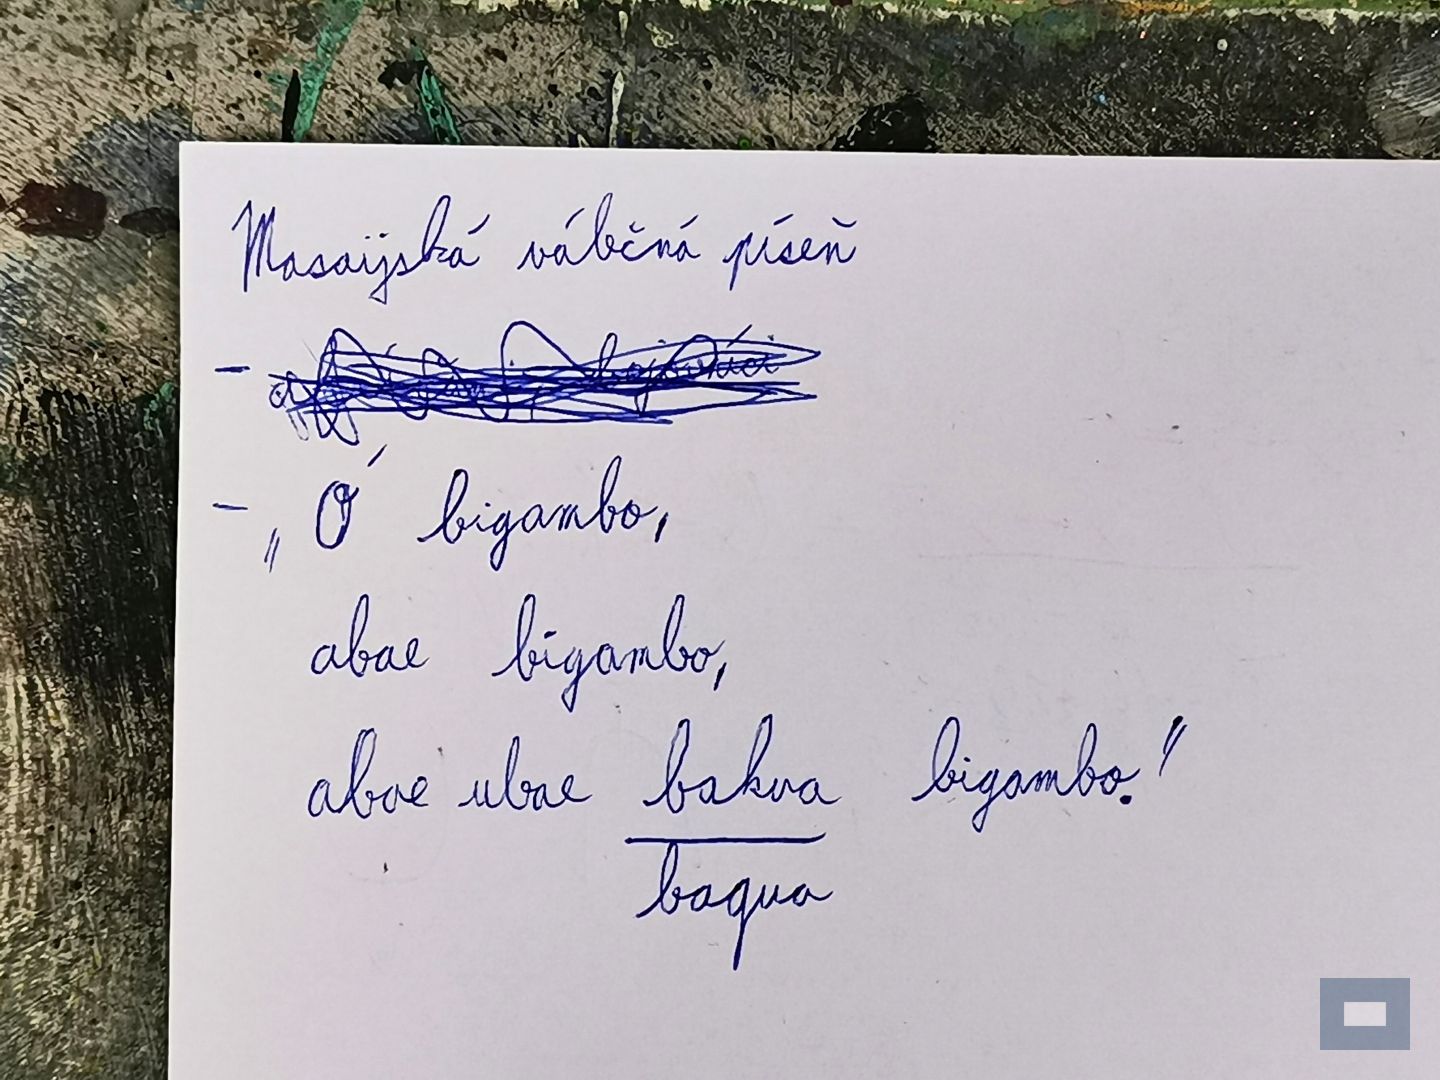 Masaijská vábčná píseň
-
- „Ó bigambo,
abae bigambo,
abae ubae bakva bigambo."
baqua